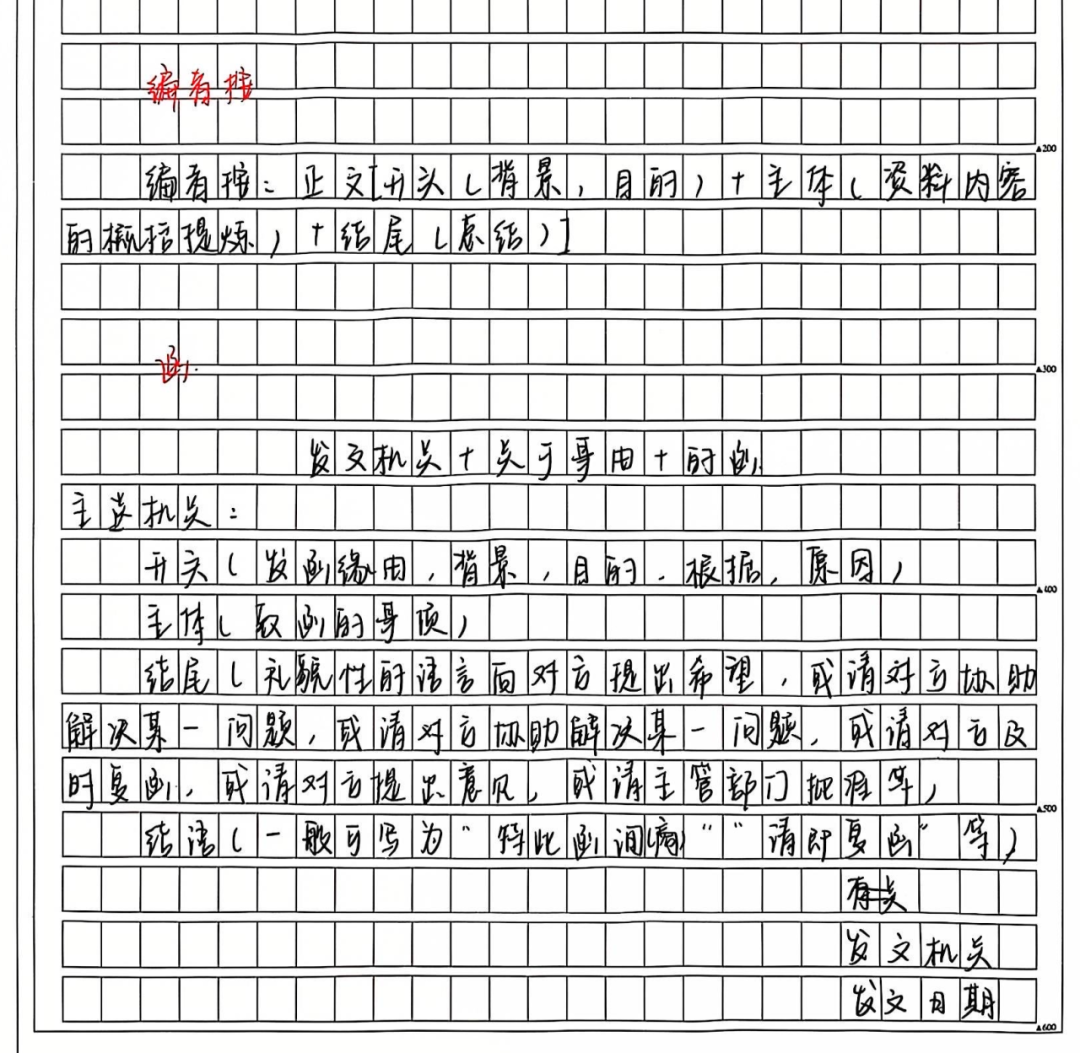 编者按
▲200
编者按：正文[开头（背景，目的）+主体（资料内容
的概括提炼）+结尾（总结）]
函
▲300
发文机关+关于事由+的函
主送机关：
开头（发函缘由，背景，目的，根据，原因）
▲400
主体（致函的事项）
结尾（礼貌性的语言向对方提出希望，或请对方协助
解决某一问题，或请对方协助解决某一问题，或请对方及
时复函，或请对方提出意见，或请主管部门批准等）
▲500
结语（一般可写为“特此函询（商）”“请即复函”等）
发文机关
发文日期
▲600